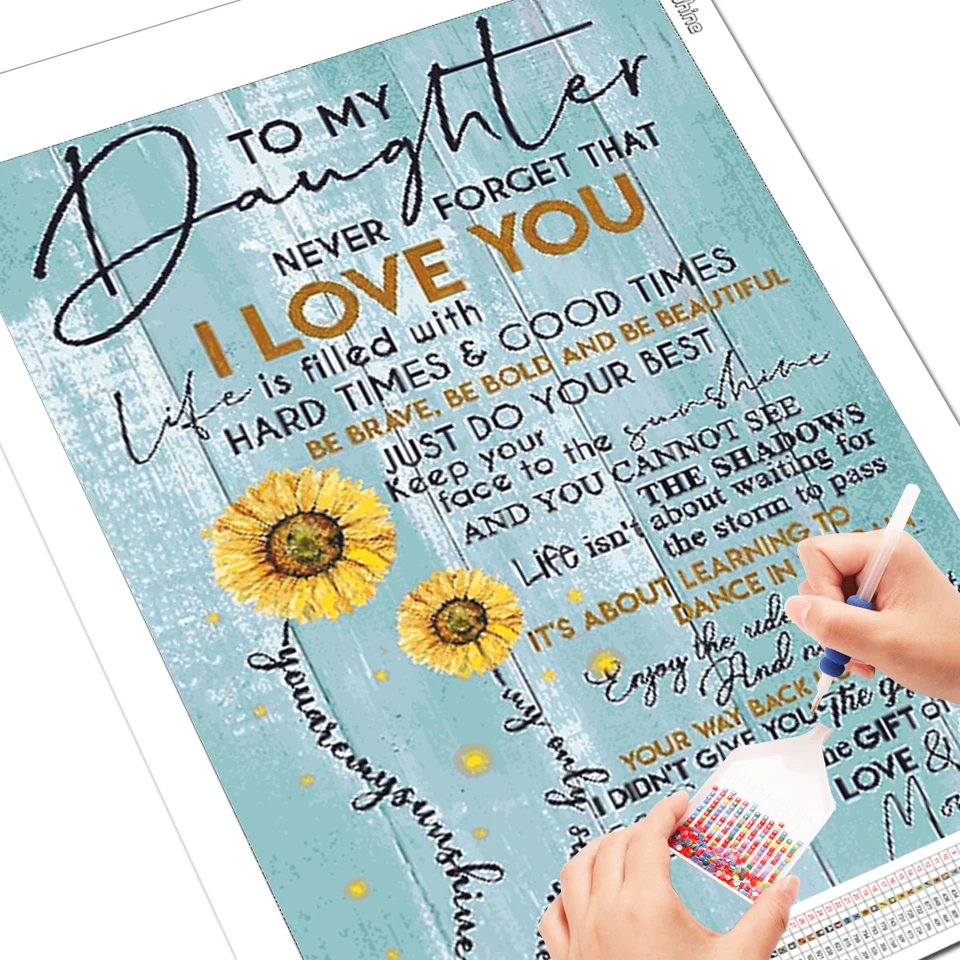 TO MY
Daughter
NEVER FORGET THAT
I LOVE YOU
Life is filled with
HARD TIMES & GOOD TIMES
BE BRAVE, BE BOLD AND BE BEAUTIFUL
JUST DO YOUR BEST
Keep your
face to the sunshine
AND YOU CANNOT SEE
THE SHADOWS
Life isn't about waiting for
the storm to pass
IT'S ABOUT LEARNING TO
DANCE IN
Enjoy the ride
And
YOUR WAY BACK
I DIDN'T GIVE YOU The
the GIFT OF
LOVE &
you are my sunshine
my only